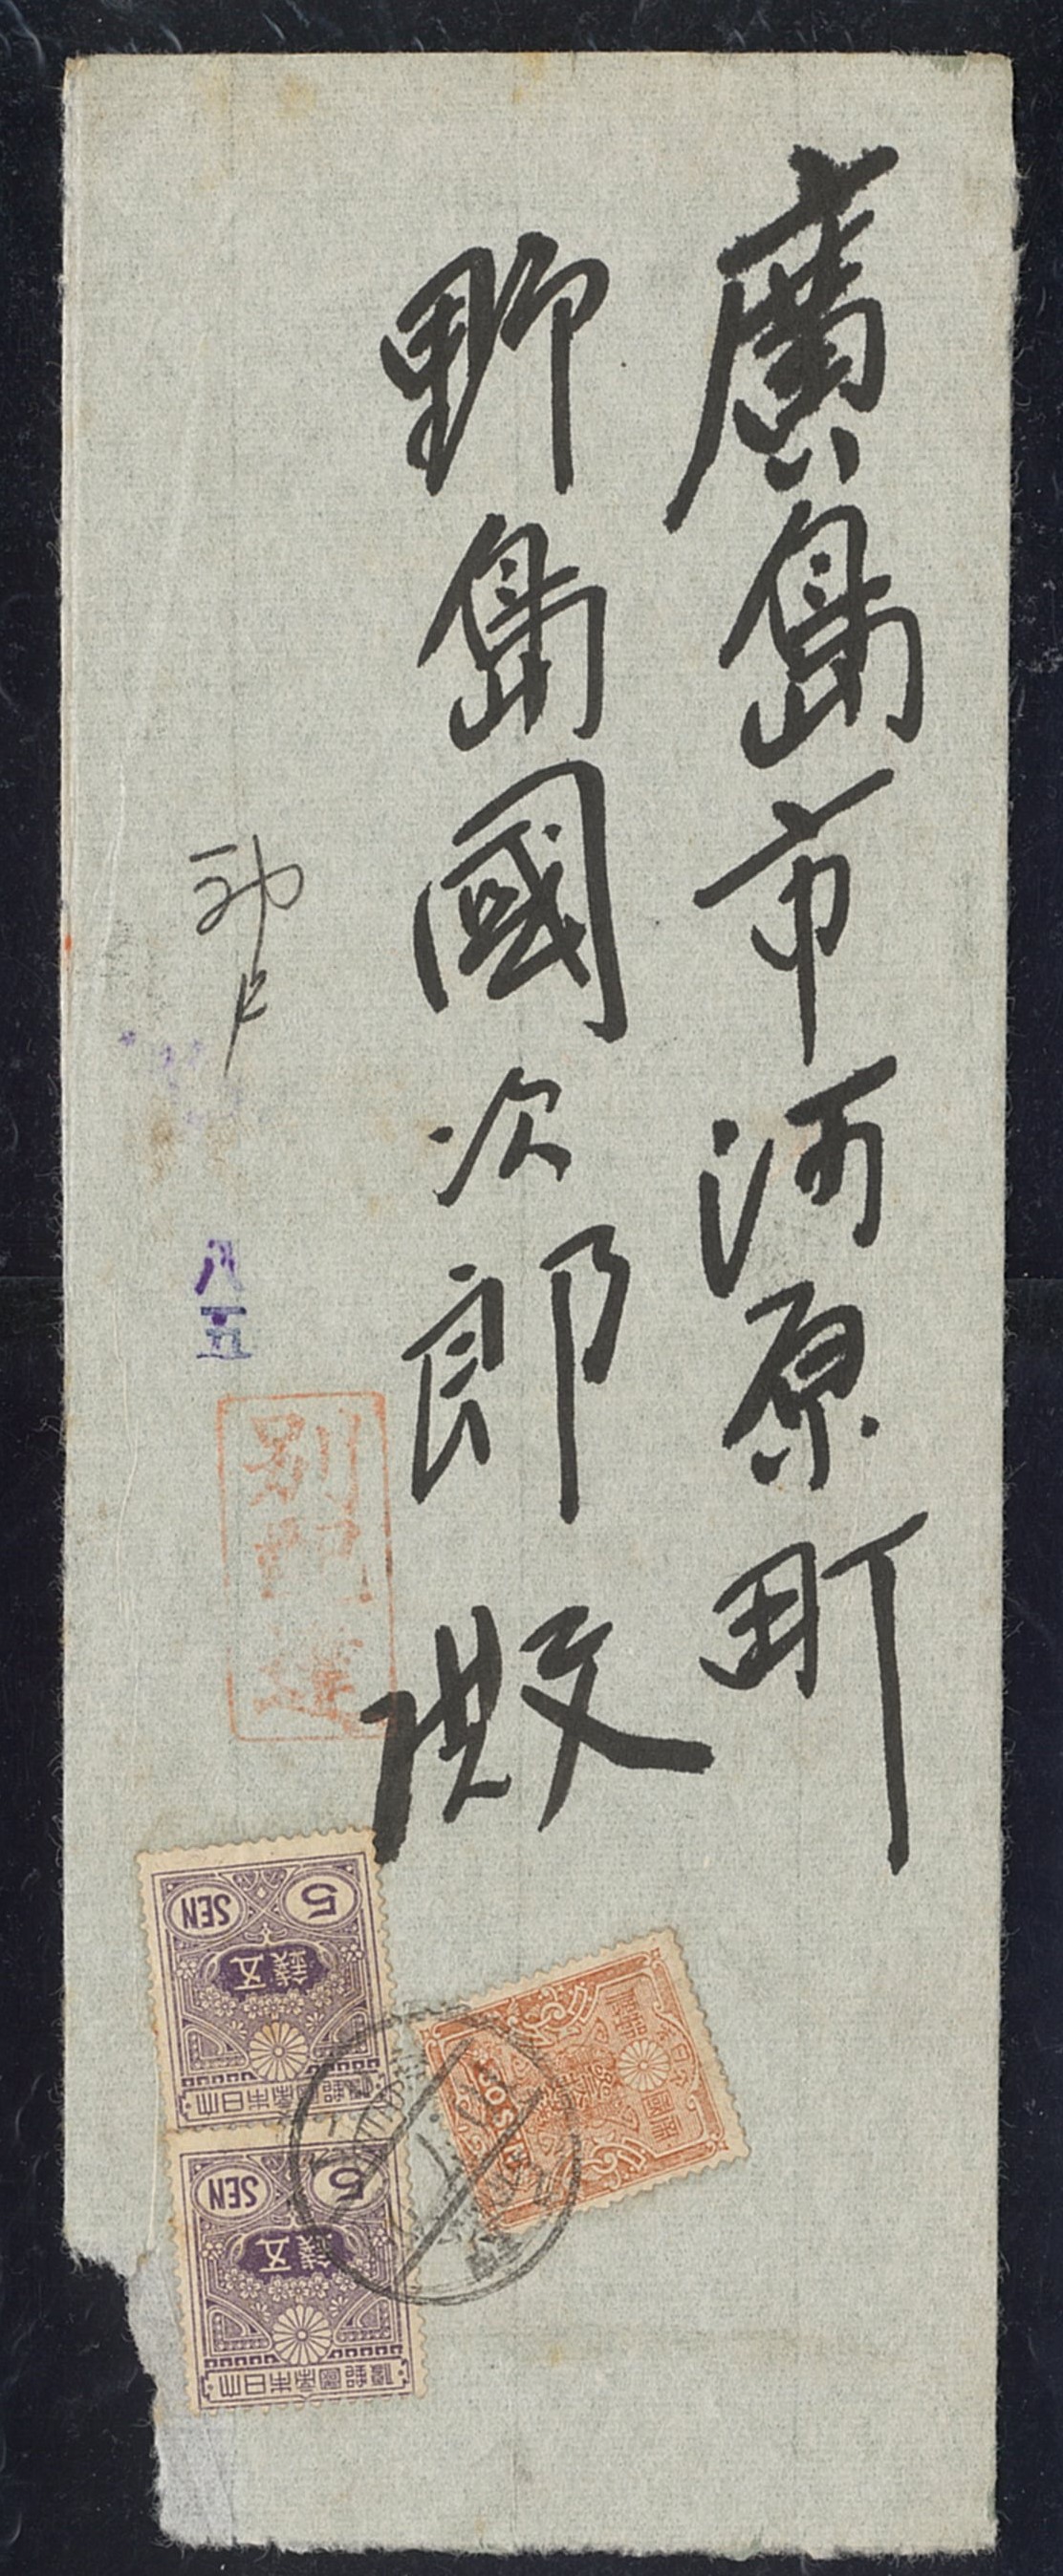 廣島市河原町
野島國次郎殿
神戸
八五
別配達
5 SEN
五錢
大日本帝國郵便
5 SEN
五錢
大日本帝國郵便